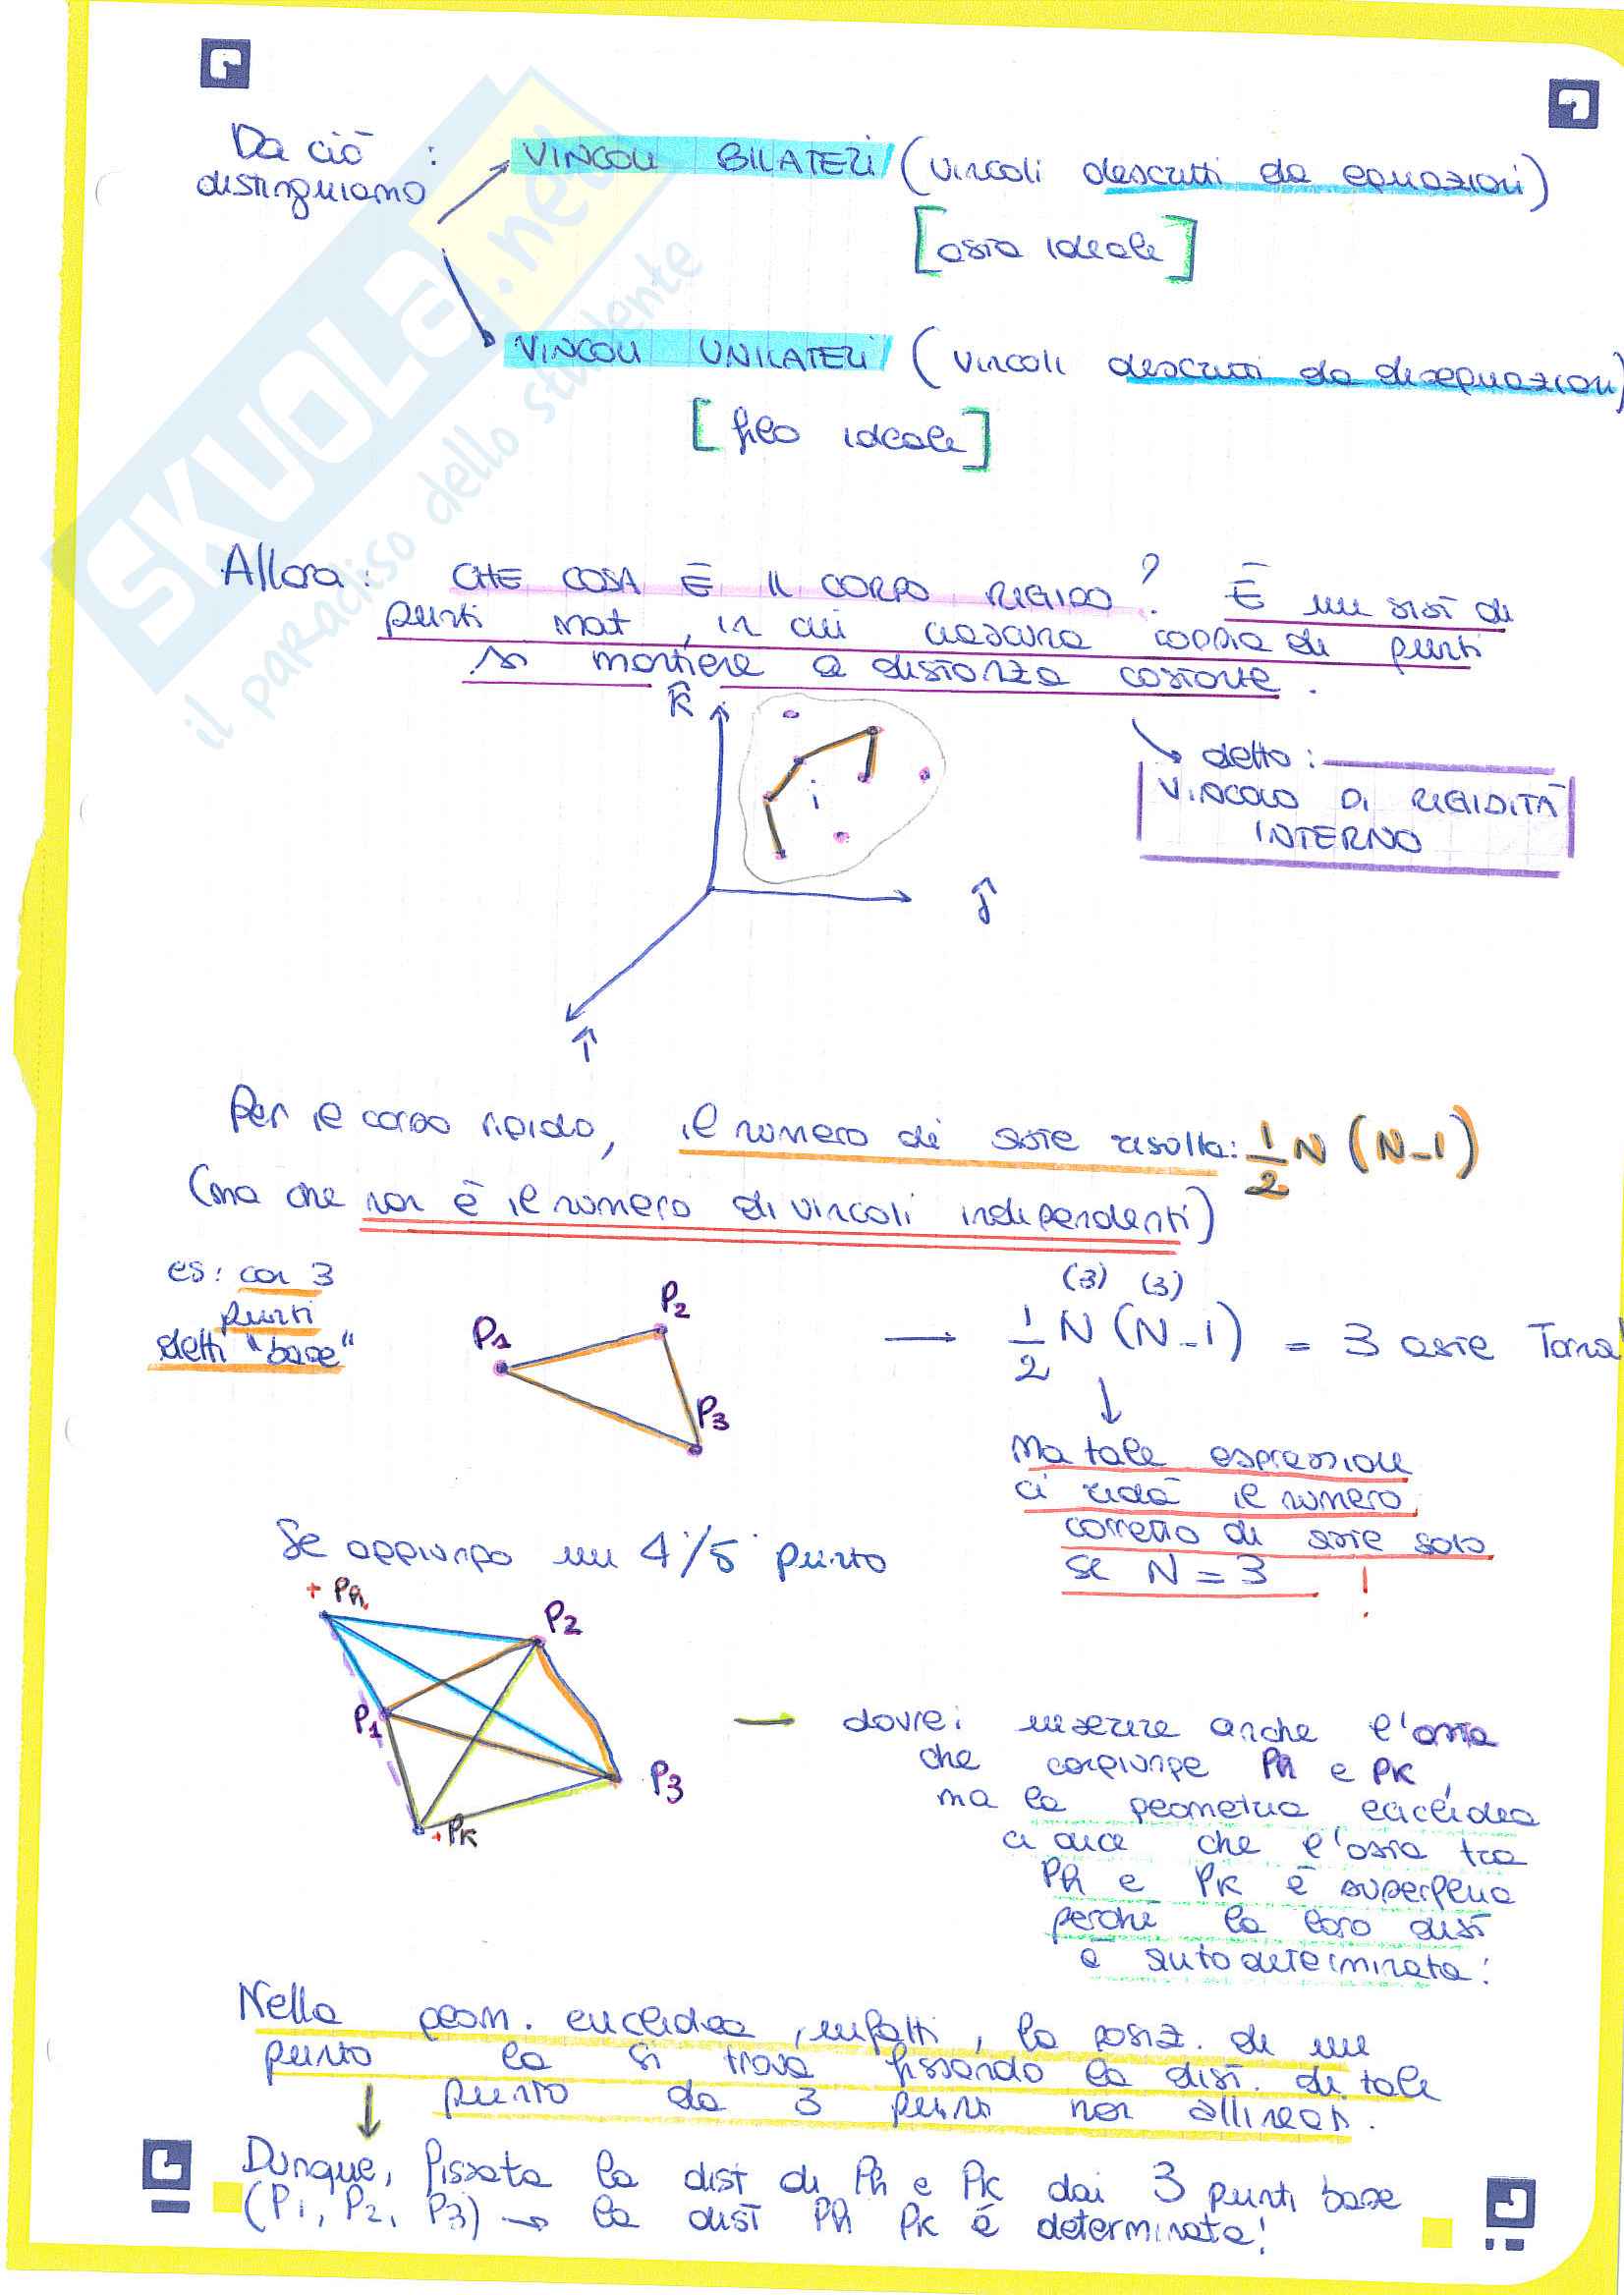 Da ciò :
distinguiamo
VINCOLI BILATERI (vincoli descritti da equazioni)
[asta ideale]
VINCOLI UNILATERI (vincoli descritti da disequazioni)
[filo ideale]
SKUOLA.net
il paradiso dello studente
Allora: CHE COSA È IL CORPO RIGIDO? È un sist di
punti mat, in cui ciascuna coppia di punti
si mantiene a distanza costante.
k̂
detto:
VINCOLO DI RIGIDITÀ
INTERNO
i
ĵ
î
Per il corpo rigido, il numero di aste risulta: 1/2 N (N-1)
(ma che non è il numero di vincoli indipendenti)
es: con 3
punti
detti "base"
P1
P2
P3
(3) (3)
→ 1/2 N (N-1) = 3 aste Torna!
↓
Ma tale espressione
ci ridà il numero
corretto di aste solo
se N=3 !
Se aggiungo un 4°/5° punto
+ Ph
P2
P1
P3
+ PK
→ dovrei inserire anche l'asta
che congiunge Ph e PK,
ma la geometria euclidea
ci dice che l'asta tra
Ph e PK è superflua
perché la loro dist
è autodeterminata!
Nella geom. euclidea, infatti, la posiz. di un
punto la si trova fissando la dist. di tale
punto da 3 punti non allineati.
↓
Dunque, fissata la dist di Ph e PK dai 3 punti base
(P1, P2, P3) → la dist Ph PK è determinata!